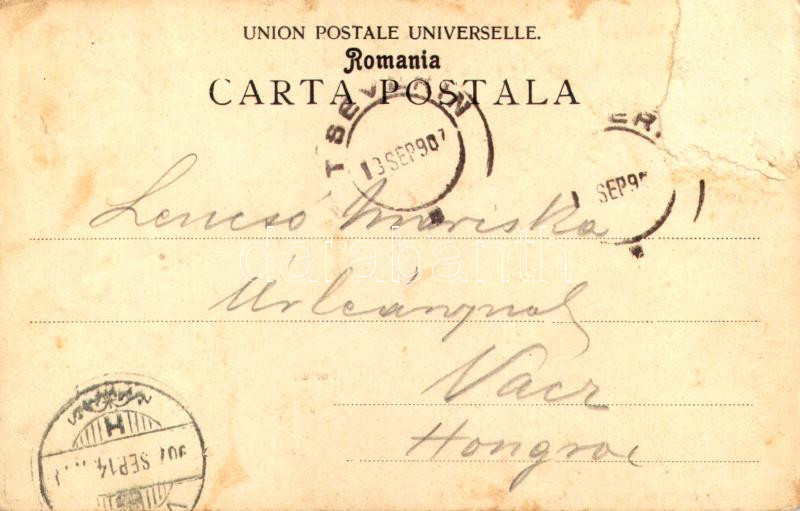 UNION POSTALE UNIVERSELLE.
Romania
CARTA POSTALA
13 SEP 907
SEP 90
Lencsó Mariska
Úrleánynak
Vácz
Hongroi
H
907 SEP 14
darabanth